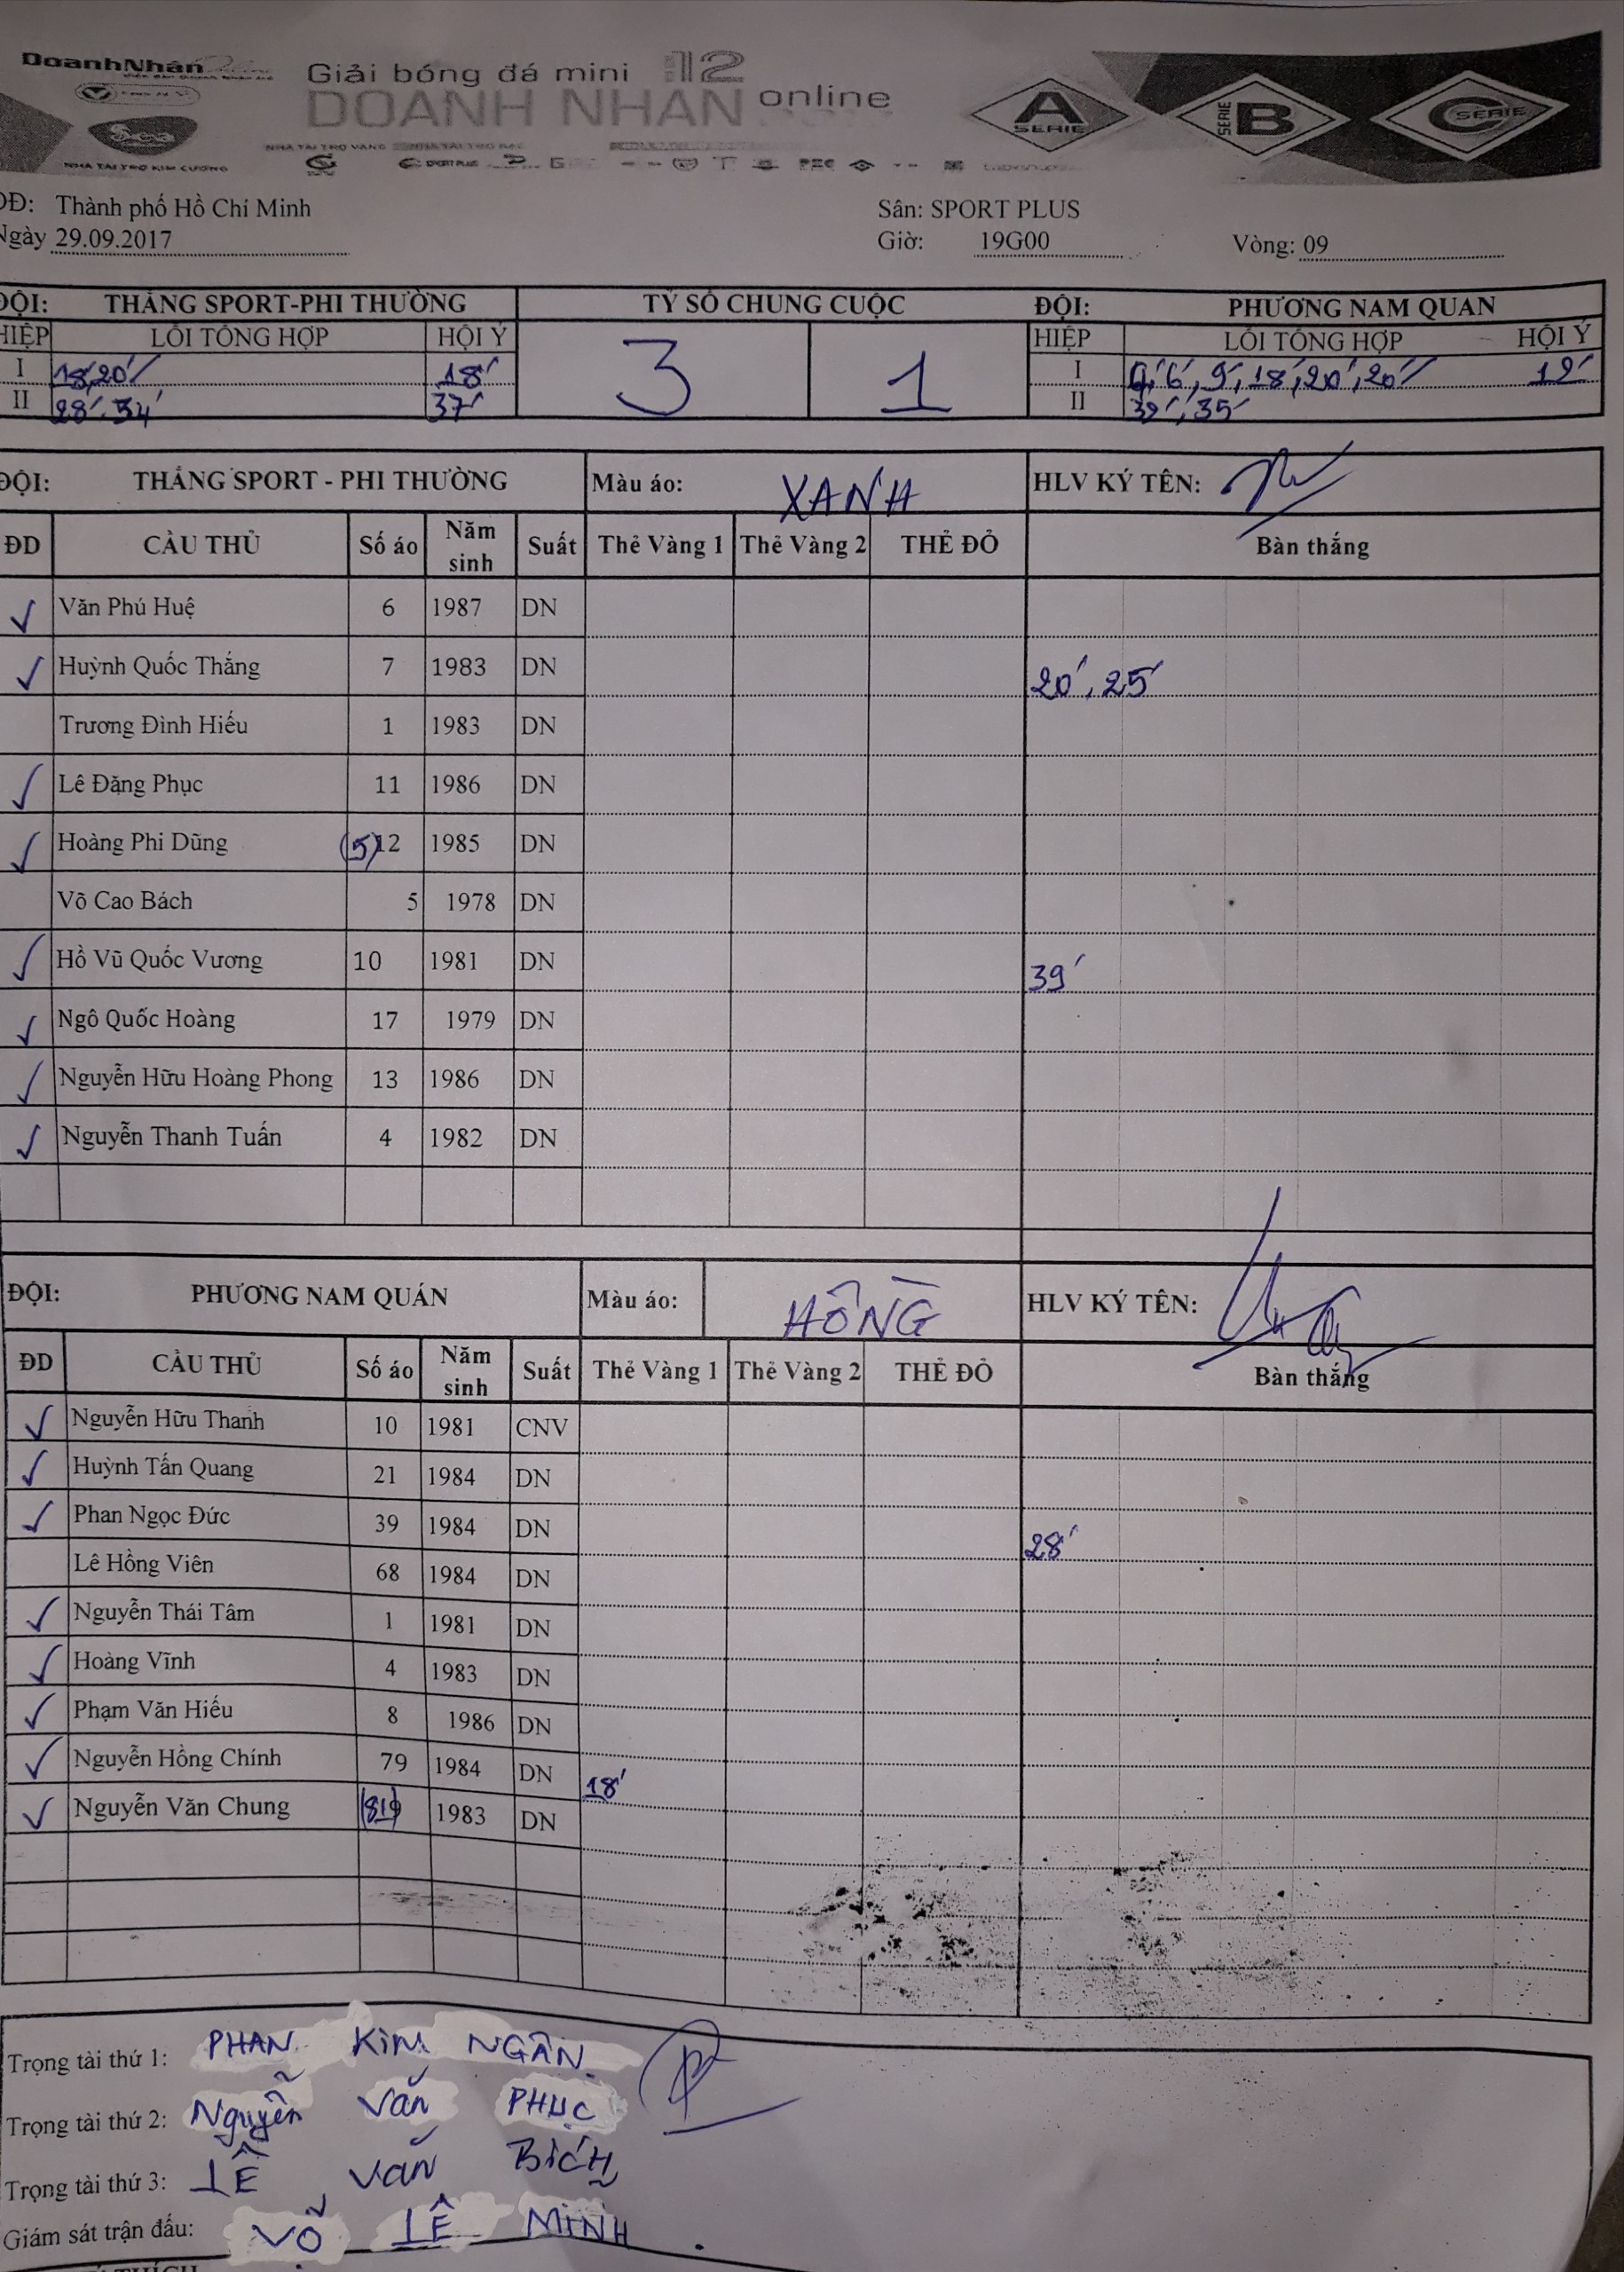 DoanhNhân
Giải bóng đá mini 12
DOANH NHAN online
A SERIE
SERIE B
C SERIE
NHÀ TÀI TRỢ KIM CƯƠNG
NHÀ TÀI TRỢ VÀNG
SPORT PLUS
ĐĐ: Thành phố Hồ Chí Minh Sân: SPORT PLUS
Ngày 29.09.2017 Giờ: 19G00 Vòng: 09
ĐỘI: THẮNG SPORT-PHI THƯỜNG TỶ SỐ CHUNG CUỘC ĐỘI: PHƯƠNG NAM QUAN
HIỆP LỖI TỔNG HỢP HỘI Ý 3 1 HIỆP LỖI TỔNG HỢP HỘI Ý
I 18', 20' 18' I 6', 9', 18', 20', 20' 12'
II 28', 34' 37' II 32', 35'
ĐỘI: THẮNG SPORT - PHI THƯỜNG Màu áo: XANH HLV KÝ TÊN:
ĐD CẦU THỦ Số áo Năm sinh Suất Thẻ Vàng 1 Thẻ Vàng 2 THẺ ĐỎ Bàn thắng
✓ Văn Phú Huệ 6 1987 DN
✓ Huỳnh Quốc Thắng 7 1983 DN 20', 25'
Trương Đình Hiếu 1 1983 DN
✓ Lê Đặng Phục 11 1986 DN
✓ Hoàng Phi Dũng (5)12 1985 DN
Võ Cao Bách 5 1978 DN
✓ Hồ Vũ Quốc Vương 10 1981 DN 39'
✓ Ngô Quốc Hoàng 17 1979 DN
✓ Nguyễn Hữu Hoàng Phong 13 1986 DN
✓ Nguyễn Thanh Tuấn 4 1982 DN
ĐỘI: PHƯƠNG NAM QUÁN Màu áo: HỒNG HLV KÝ TÊN:
ĐD CẦU THỦ Số áo Năm sinh Suất Thẻ Vàng 1 Thẻ Vàng 2 THẺ ĐỎ Bàn thắng
✓ Nguyễn Hữu Thanh 10 1981 CNV
✓ Huỳnh Tấn Quang 21 1984 DN
✓ Phan Ngọc Đức 39 1984 DN 28'
Lê Hồng Viên 68 1984 DN
✓ Nguyễn Thái Tâm 1 1981 DN
✓ Hoàng Vĩnh 4 1983 DN
✓ Phạm Văn Hiếu 8 1986 DN
✓ Nguyễn Hồng Chính 79 1984 DN 18'
✓ Nguyễn Văn Chung 1983 DN
Trọng tài thứ 1: PHAN KIM NGÂN
Trọng tài thứ 2: Nguyễn Văn PHỤC
Trọng tài thứ 3: LÊ Văn BÍCH
Giám sát trận đấu: VÕ LÊ MINH